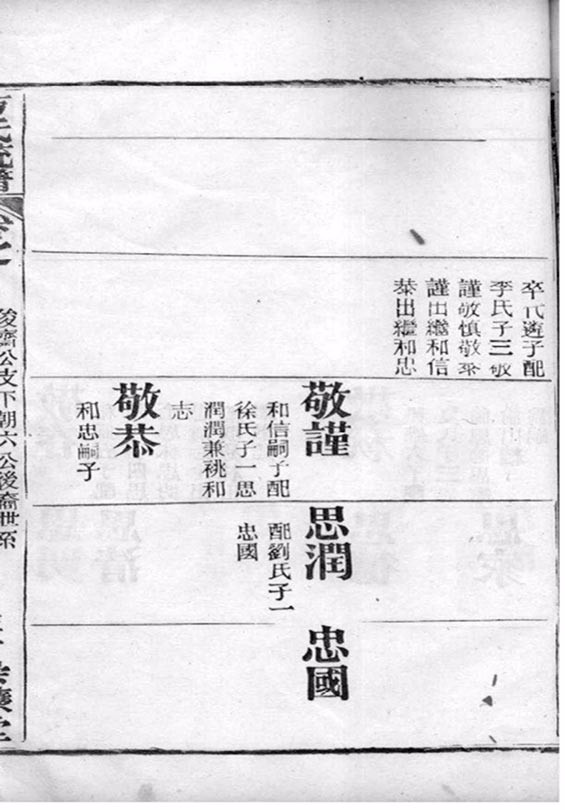 卒代遊子配
李氏子三敬
謹敬慎敬恭
謹出繼和信
恭出繼和忠
敬謹
和信嗣子配
徐氏子一思
潤潤兼祧和
志
敬恭
和忠嗣子
思潤
配劉氏子一
忠國
忠國
氏統譜
卷之
公支下朝六公後裔世系